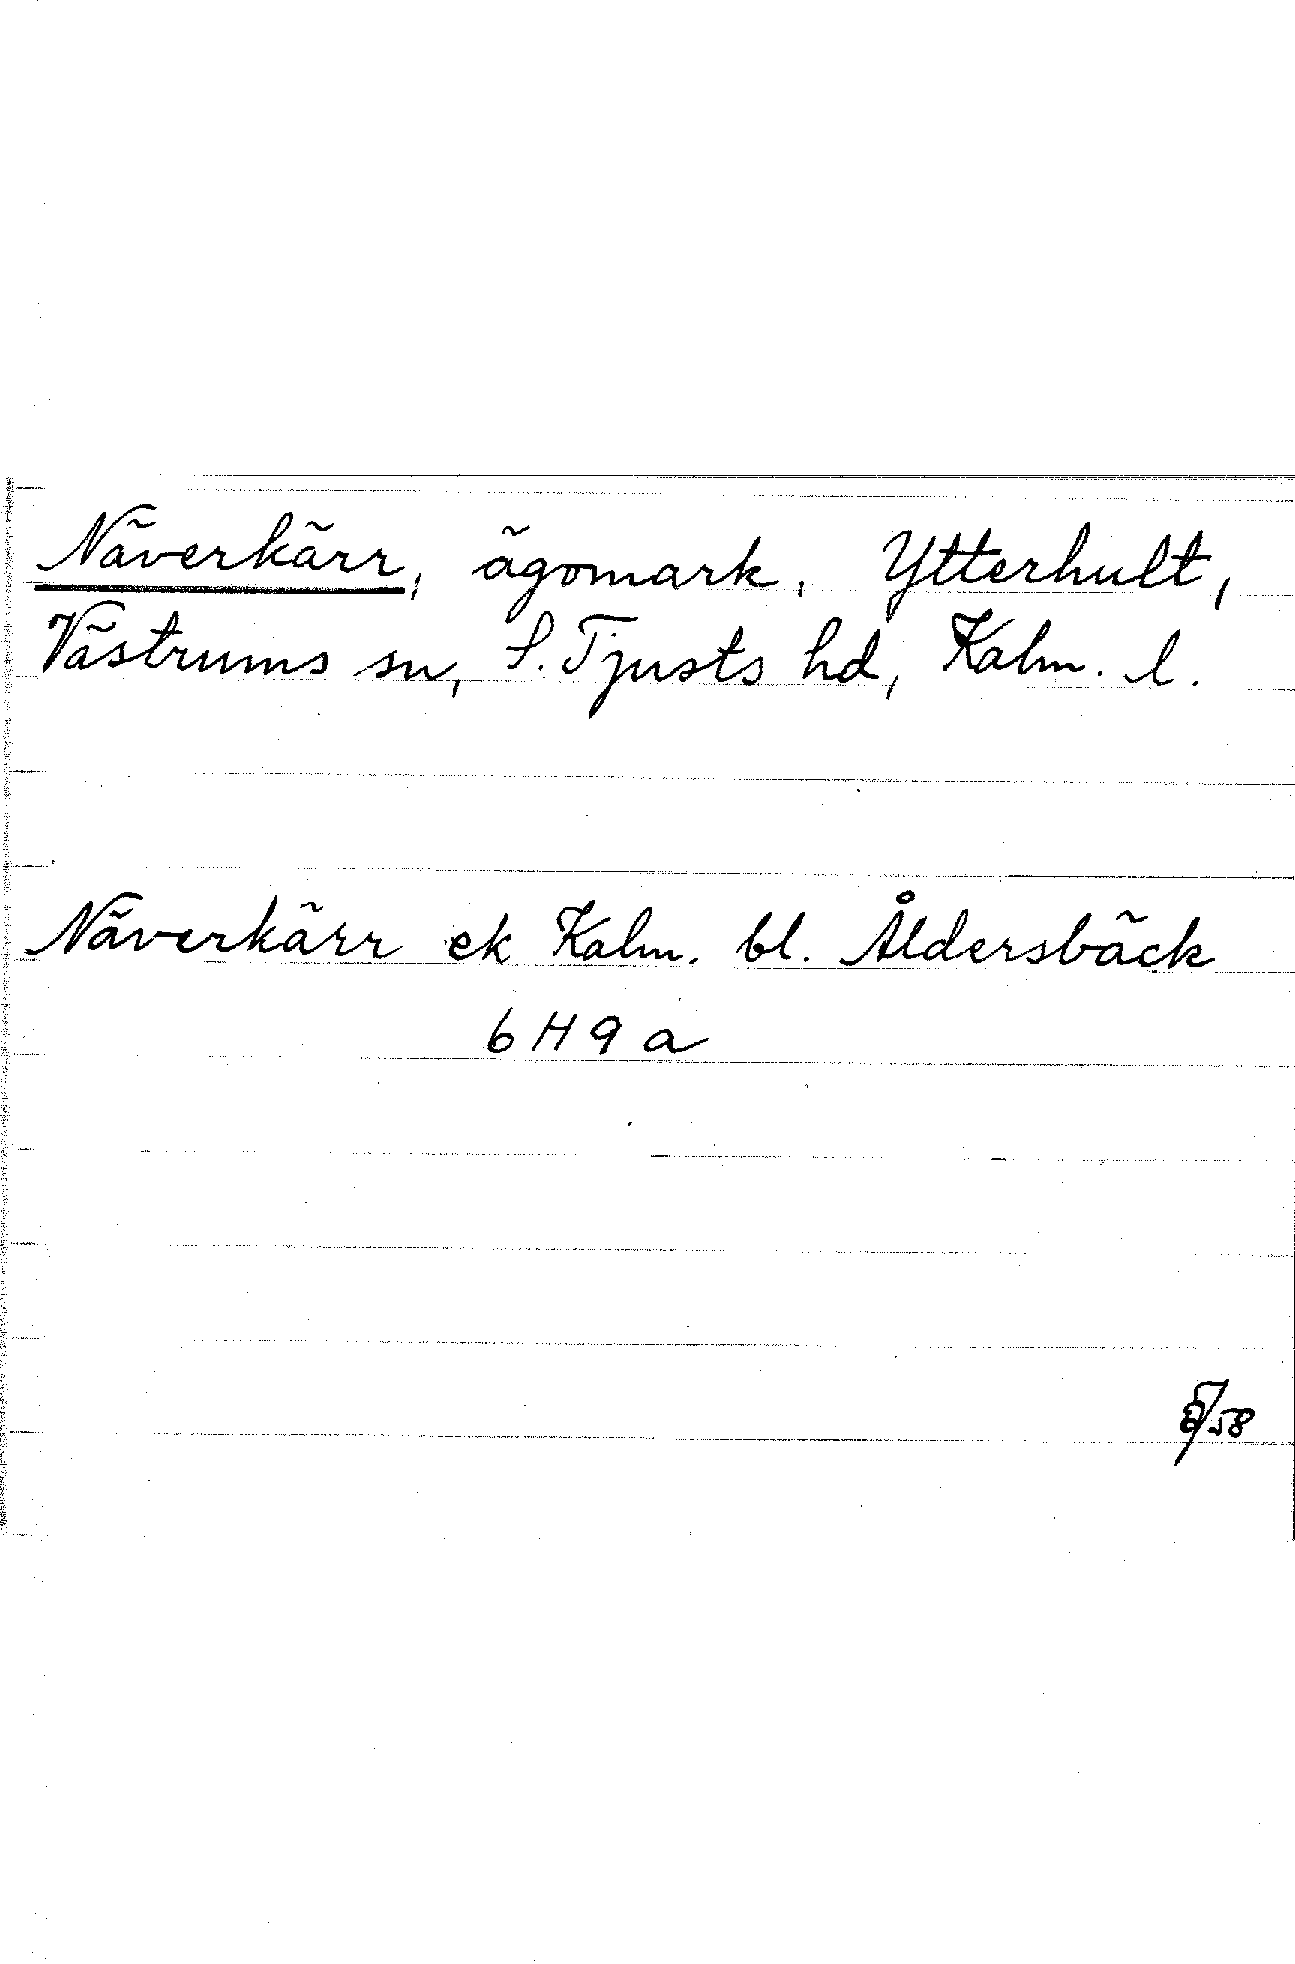 Näverkärr, ägomark, Ytterhult,
Västrums sn, S. Tjusts hd, Kalm. l.
Näverkärr ek Kalm. bl. Åldersbäck
6 H 9 a